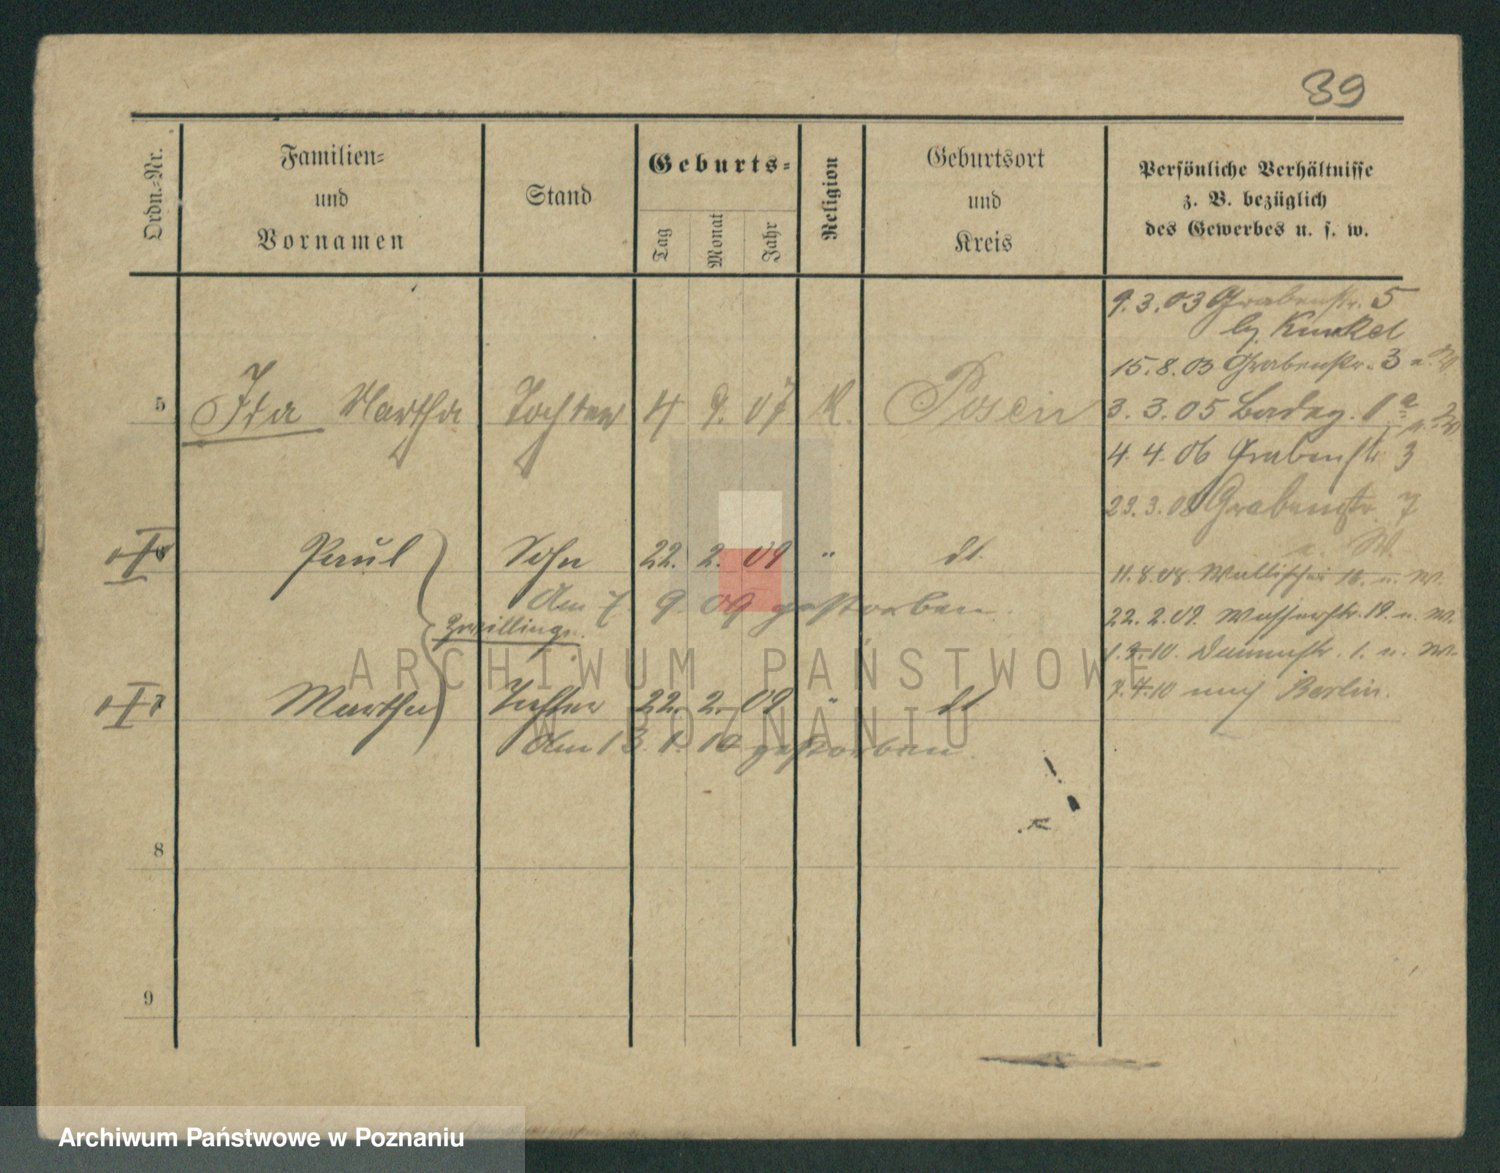 39
Ordn.-Nr.
Familien-
und
Vornamen
Stand
Geburts-
Tag
Monat
Jahr
Religion
Geburtsort
und
Kreis
Persönliche Verhältnisse
z. B. bezüglich
des Gewerbes u. s. w.
9.3.03 Grabenstr. 5
by Kunkel
15.8.03 Grabenstr. 3
5 Ida Martha Tochter 4 9. 07 K. Posen
3. 3. 05
4. 4. 06 Grabenstr 3
23.3.08 Grabenstr 7
u. W.
Paul Sohn 22. 2. 09 " dt
11.8.08 Wallischei 16. u. W.
Am 7. 9 09 gestorben.
22. 2. 09. Wasserstr. 19. u. W.
Zwillinge.
1.4.10. Dammstr. 1. u. W.
Martha Tochter 22. 2. 09 " dt
7.4.10 nach Berlin.
Am 13. 1. 10 gestorben.
8
9
ARCHIWUM PAŃSTWOWE
W POZNANIU
Archiwum Państwowe w Poznaniu